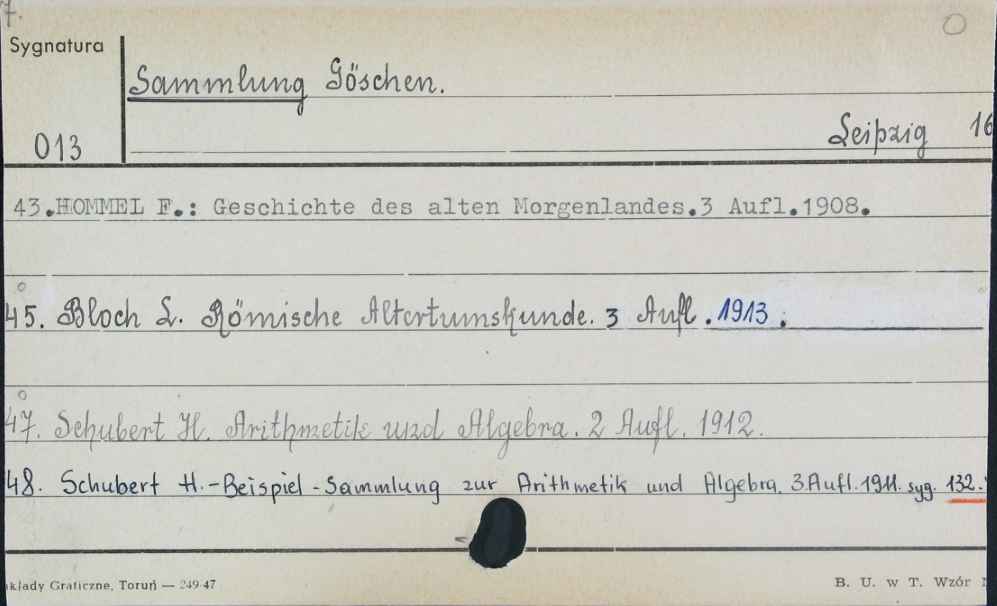 7.
Sygnatura
Sammlung Göschen.
013
Leipzig 16
43.HOMMEL F.: Geschichte des alten Morgenlandes.3 Aufl.1908.
45. Bloch L. Römische Altertumskunde. 3 Aufl. 1913.
47. Schubert H. Arithmetik und Algebra. 2 Aufl. 1912.
48. Schubert H.-Beispiel-Sammlung zur Arithmetik und Algebra. 3.Aufl.1911. syg. 132.
kłady Graficzne, Toruń — 249-47
B. U. w T. Wzór